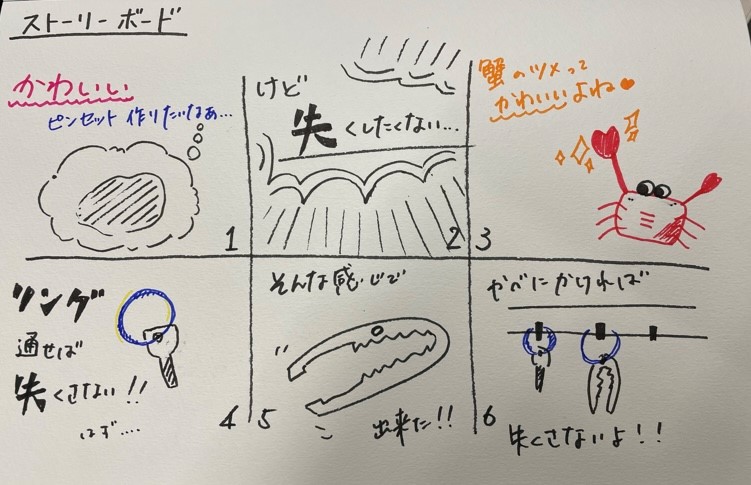 ストーリーボード
かわいい
ピンセット作りたいなあ…
1
けど
失くしたくない…
2
蟹のツメって
かわいいよね♥
3
リング
通せば
失くさない!!
はず….
4
そんな感じで
出来た!!
5
かべにかければ
失くさないよ!!
6